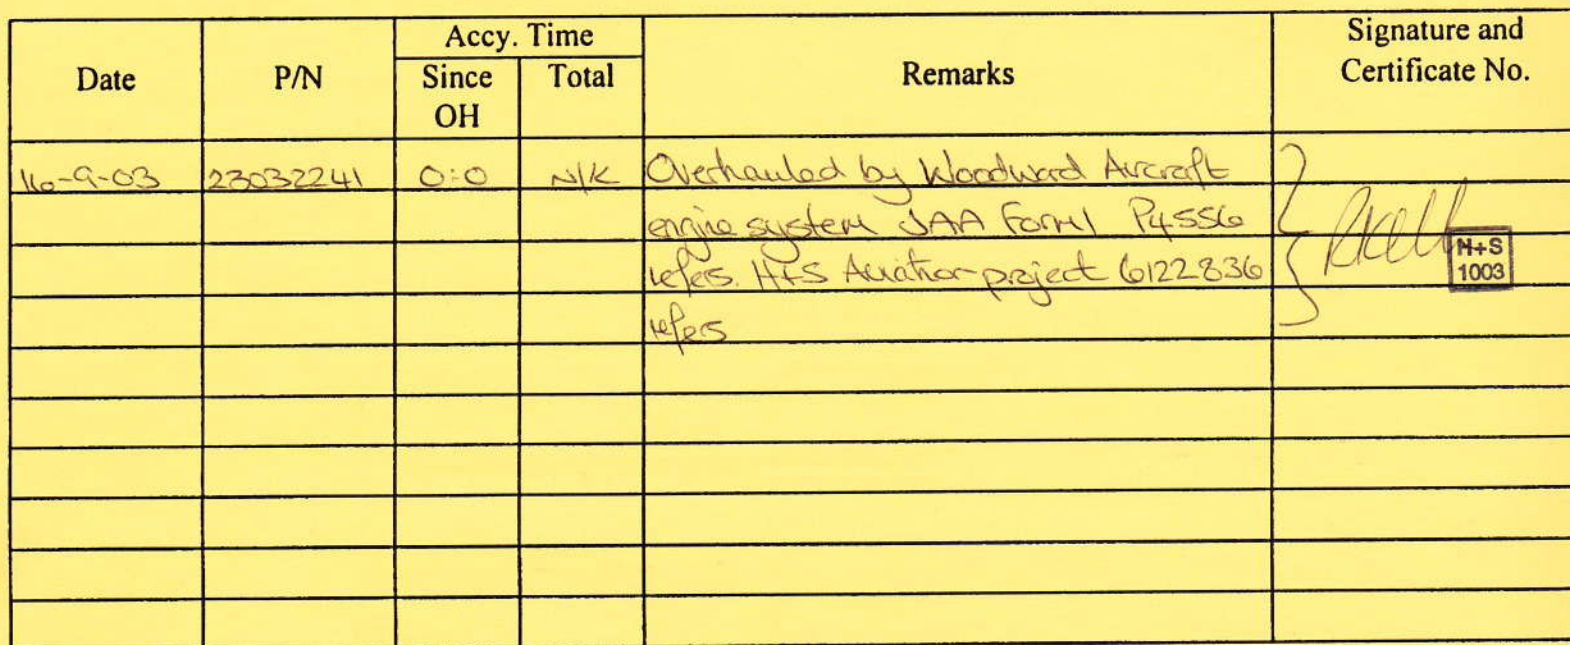 Date P/N Accy. Time Remarks Signature and Certificate No.
Since OH Total
16-9-03 23032241 0:0 N/K Overhauled by Woodward Aircraft
engine system JAA Form 1 P4556
refers. H+S Aviation project 6122836
refers
H+S
1003